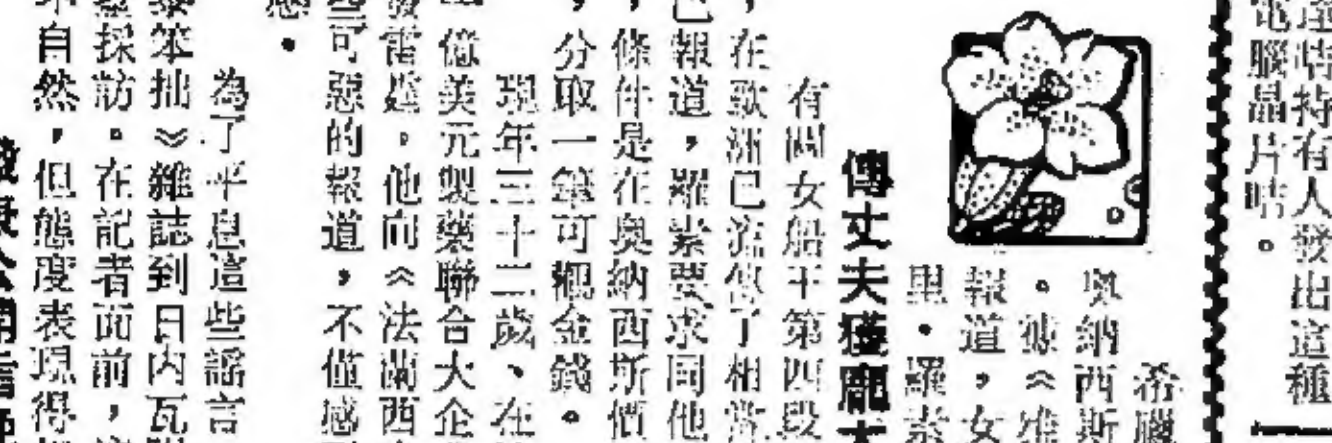 達時持有人發出這種
電腦晶片咭。
希臘
奧納西斯
。據《維
報道，女
里·羅索
傳丈夫獲龐大
有關女船王第四段
，在歐洲已流傳了相當
已報道，羅索要求同他
，條件是在奧納西斯價
，分取一筆可觀金錢。
現年三十二歲、在
億美元製藥聯合大企
發雷霆。他向《法蘭西
些可惡的報道，不僅感
感。
為了平息這些謠言
笨拙》雜誌到日內瓦
採訪。在記者面前，
自然，但態度表現得